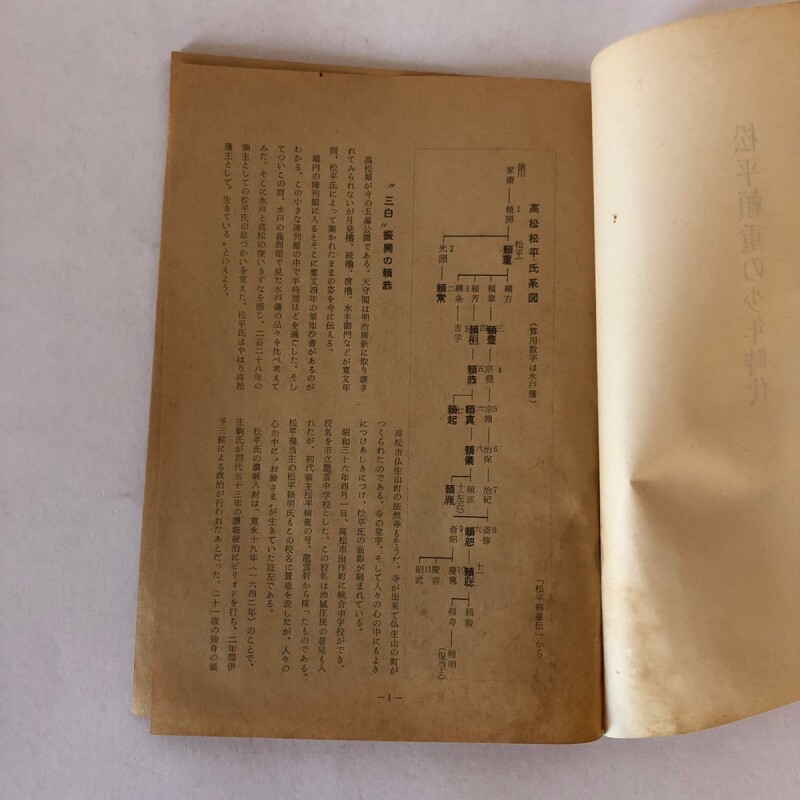 松平頼重の少年時代
高松松平氏系図
(算用数字は水戸藩)
「松平頼重伝」から
家康
1頼房
松平
頼重
2光圀
綱方
頼章
頼芳
3綱条
二頼常
三頼豊
四頼桓
5吉孚
4宗堯
五頼恭
5宗翰
六頼真
七頼起
6治保
八頼儀
7治紀
頼胤
8斉脩
9斉昭
頼恕
十一頼聡
10慶篤
11慶喜
昭武
頼親
頼寿
頼明
(現当主)
〝三白〟振興の頼恭
高松城が今の玉藻公園である。天守閣は明治維新に取り壊さ
れてみられないが月見櫓、続櫓、渡櫓、水手御門などが寛文年
間、松平氏によって築かれたままの姿を今に伝える。
城内の陳列館に入るとそこに寛文四年の領知沙書があるのが
わかる。この小さな陳列館の中で半時間ほどを過ごした。そし
てついこの間、水戸の義烈館で見た水戸藩の品々を比べ考えて
みた。そこに水戸と高松の強いきずなを感じ、二百二十八年の
領主としての松平氏の息づかいを覚えた。松平氏はやはり高松
藩主として〝生きている〟といえよう。
高松市仏生山町の法然寺もそうだ。寺が出来て仏生山の町が
つくられたのである。寺の堂宇、そして人々の心の中にもよき
につけあしきにつけ、松平氏の面影が刻まれている。
昭和三十六年四月一日、高松市出作町に統合中学校ができ、
校名を市立竜雲中学校とした。この校名は地域住民の意見も入
れたが、初代領主松平頼重の号、龍雲軒から採ったものである。
松平現当主の松平頼明氏もこの校名に賛意を表したが、人々の
心の中に〝お殿さま〟が生きていた証左である。
松平氏の讃岐入封は、寛永十九年(一六四二年)のことで、
生駒氏が四代五十三年の讃岐統治にピリオドを打ち、二年間伊
予三侯による政治が行われたあとだった。二十一歳の独身の領
— 1 —